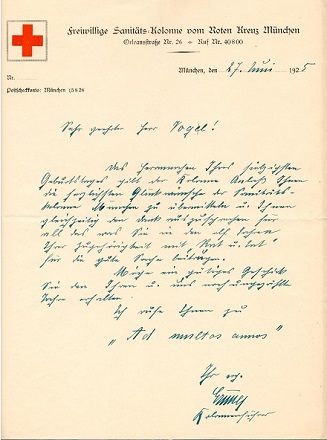 Freiwillige Sanitäts-Kolonne vom Roten Kreuz München
Orleansstraße Nr. 26 - Ruf Nr. 40800
Nr.
München, den 27. Juni 1925
Postscheckkonto: München 15826
Sehr geehrter Herr Vogel!
Das Herannahen Ihres siebzigsten
Geburtstages gibt der Kolonne Anlaß Ihnen
die herzlichsten Glückwünsche der Sanitäts-
kolonne München zu übermitteln u. Ihnen
gleichzeitig den Dank auszusprechen für
all das was Sie in den elf Jahren
Ihrer Zugehörigkeit mit "Rat u. Tat"
für die gute Sache beitrugen.
Möge ein gütiges Geschick
Sie den Ihren u. uns noch ungezählte
Jahre erhalten.
Ich rufe Ihnen zu
"Ad multos annos"
Ihr erg.
Kolonnenführer